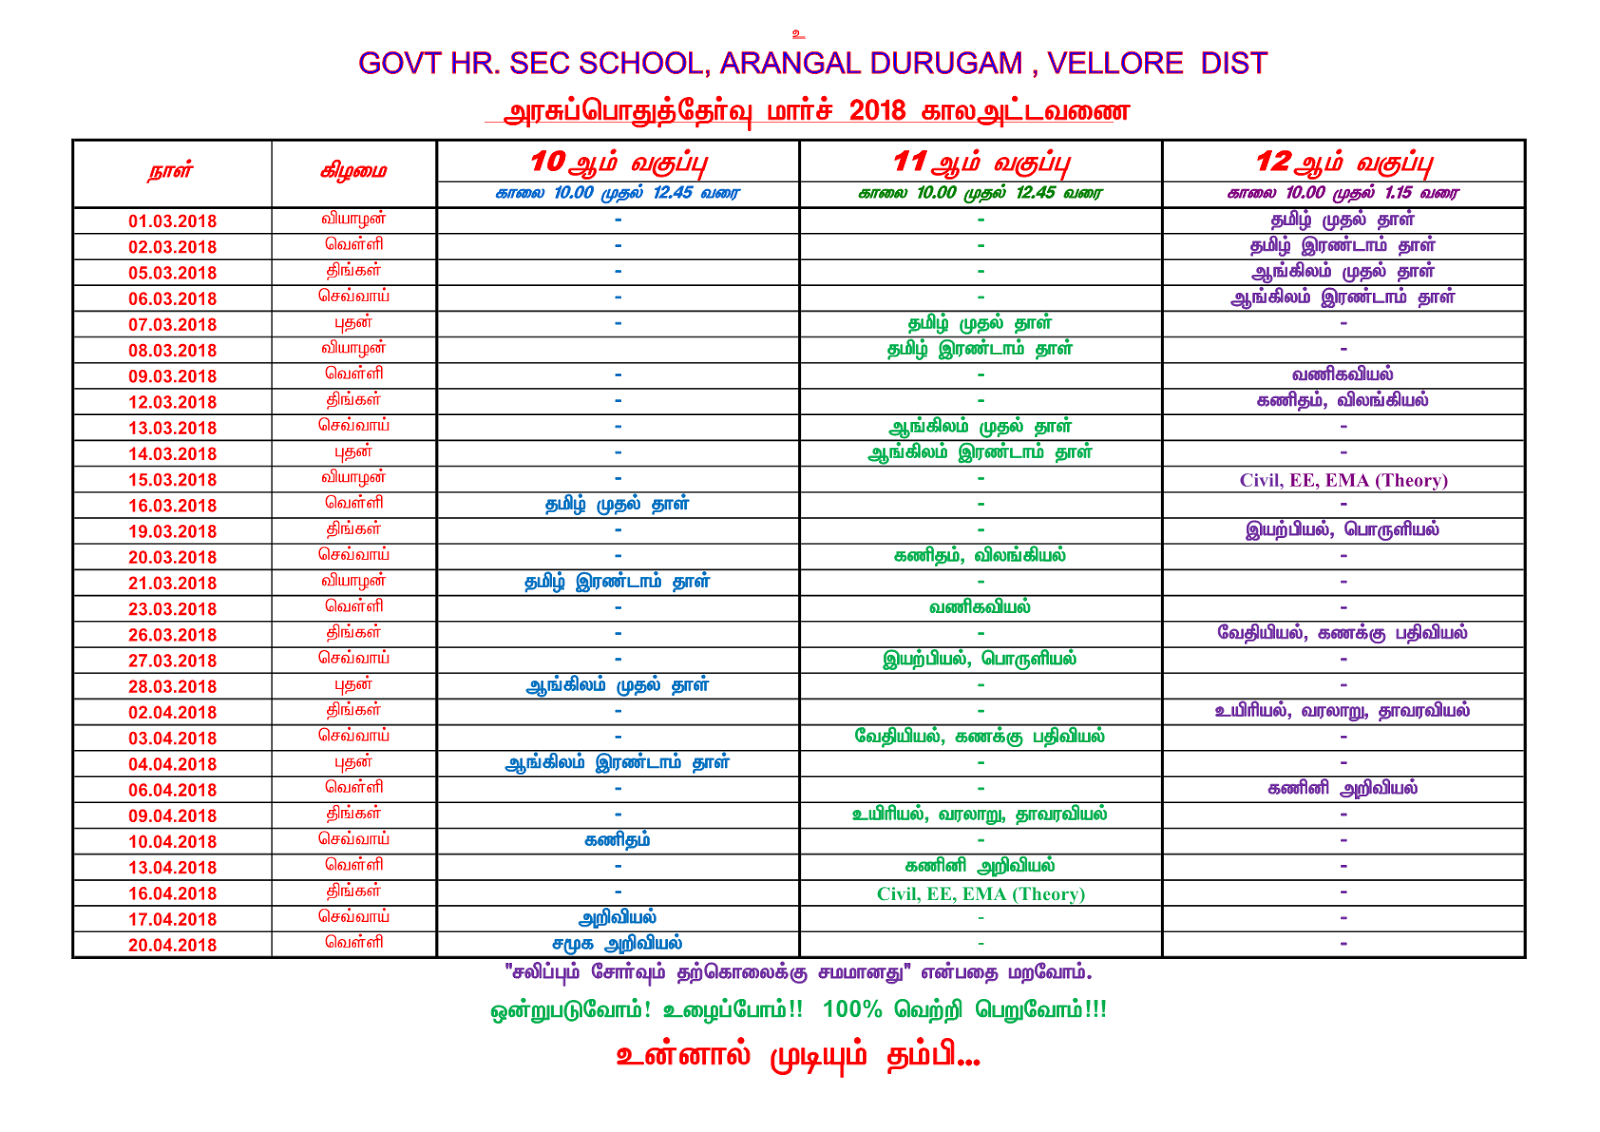 உ
GOVT HR. SEC SCHOOL, ARANGAL DURUGAM , VELLORE DIST
அரசுப்பொதுத்தேர்வு மார்ச் 2018 காலஅட்டவணை
நாள் கிழமை 10ஆம் வகுப்பு 11ஆம் வகுப்பு 12ஆம் வகுப்பு
காலை 10.00 முதல் 12.45 வரை காலை 10.00 முதல் 12.45 வரை காலை 10.00 முதல் 1.15 வரை
01.03.2018 வியாழன் - - தமிழ் முதல் தாள்
02.03.2018 வெள்ளி - - தமிழ் இரண்டாம் தாள்
05.03.2018 திங்கள் - - ஆங்கிலம் முதல் தாள்
06.03.2018 செவ்வாய் - - ஆங்கிலம் இரண்டாம் தாள்
07.03.2018 புதன் - தமிழ் முதல் தாள் -
08.03.2018 வியாழன் தமிழ் இரண்டாம் தாள் -
09.03.2018 வெள்ளி - - வணிகவியல்
12.03.2018 திங்கள் - - கணிதம், விலங்கியல்
13.03.2018 செவ்வாய் - ஆங்கிலம் முதல் தாள் -
14.03.2018 புதன் - ஆங்கிலம் இரண்டாம் தாள் -
15.03.2018 வியாழன் - - Civil, EE, EMA (Theory)
16.03.2018 வெள்ளி தமிழ் முதல் தாள் - -
19.03.2018 திங்கள் - - இயற்பியல், பொருளியல்
20.03.2018 செவ்வாய் - கணிதம், விலங்கியல் -
21.03.2018 வியாழன் தமிழ் இரண்டாம் தாள் - -
23.03.2018 வெள்ளி - வணிகவியல் -
26.03.2018 திங்கள் - - வேதியியல், கணக்கு பதிவியல்
27.03.2018 செவ்வாய் - இயற்பியல், பொருளியல் -
28.03.2018 புதன் ஆங்கிலம் முதல் தாள் - -
02.04.2018 திங்கள் - - உயிரியல், வரலாறு, தாவரவியல்
03.04.2018 செவ்வாய் - வேதியியல், கணக்கு பதிவியல் -
04.04.2018 புதன் ஆங்கிலம் இரண்டாம் தாள் - -
06.04.2018 வெள்ளி - - கணினி அறிவியல்
09.04.2018 திங்கள் - உயிரியல், வரலாறு, தாவரவியல் -
10.04.2018 செவ்வாய் கணிதம் - -
13.04.2018 வெள்ளி - கணினி அறிவியல் -
16.04.2018 திங்கள் - Civil, EE, EMA (Theory) -
17.04.2018 செவ்வாய் அறிவியல் - -
20.04.2018 வெள்ளி சமூக அறிவியல் - -
"சலிப்பும் சோர்வும் தற்கொலைக்கு சமமானது" என்பதை மறவோம்.
ஒன்றுபடுவோம்! உழைப்போம்!! 100% வெற்றி பெறுவோம்!!!
உன்னால் முடியும் தம்பி...